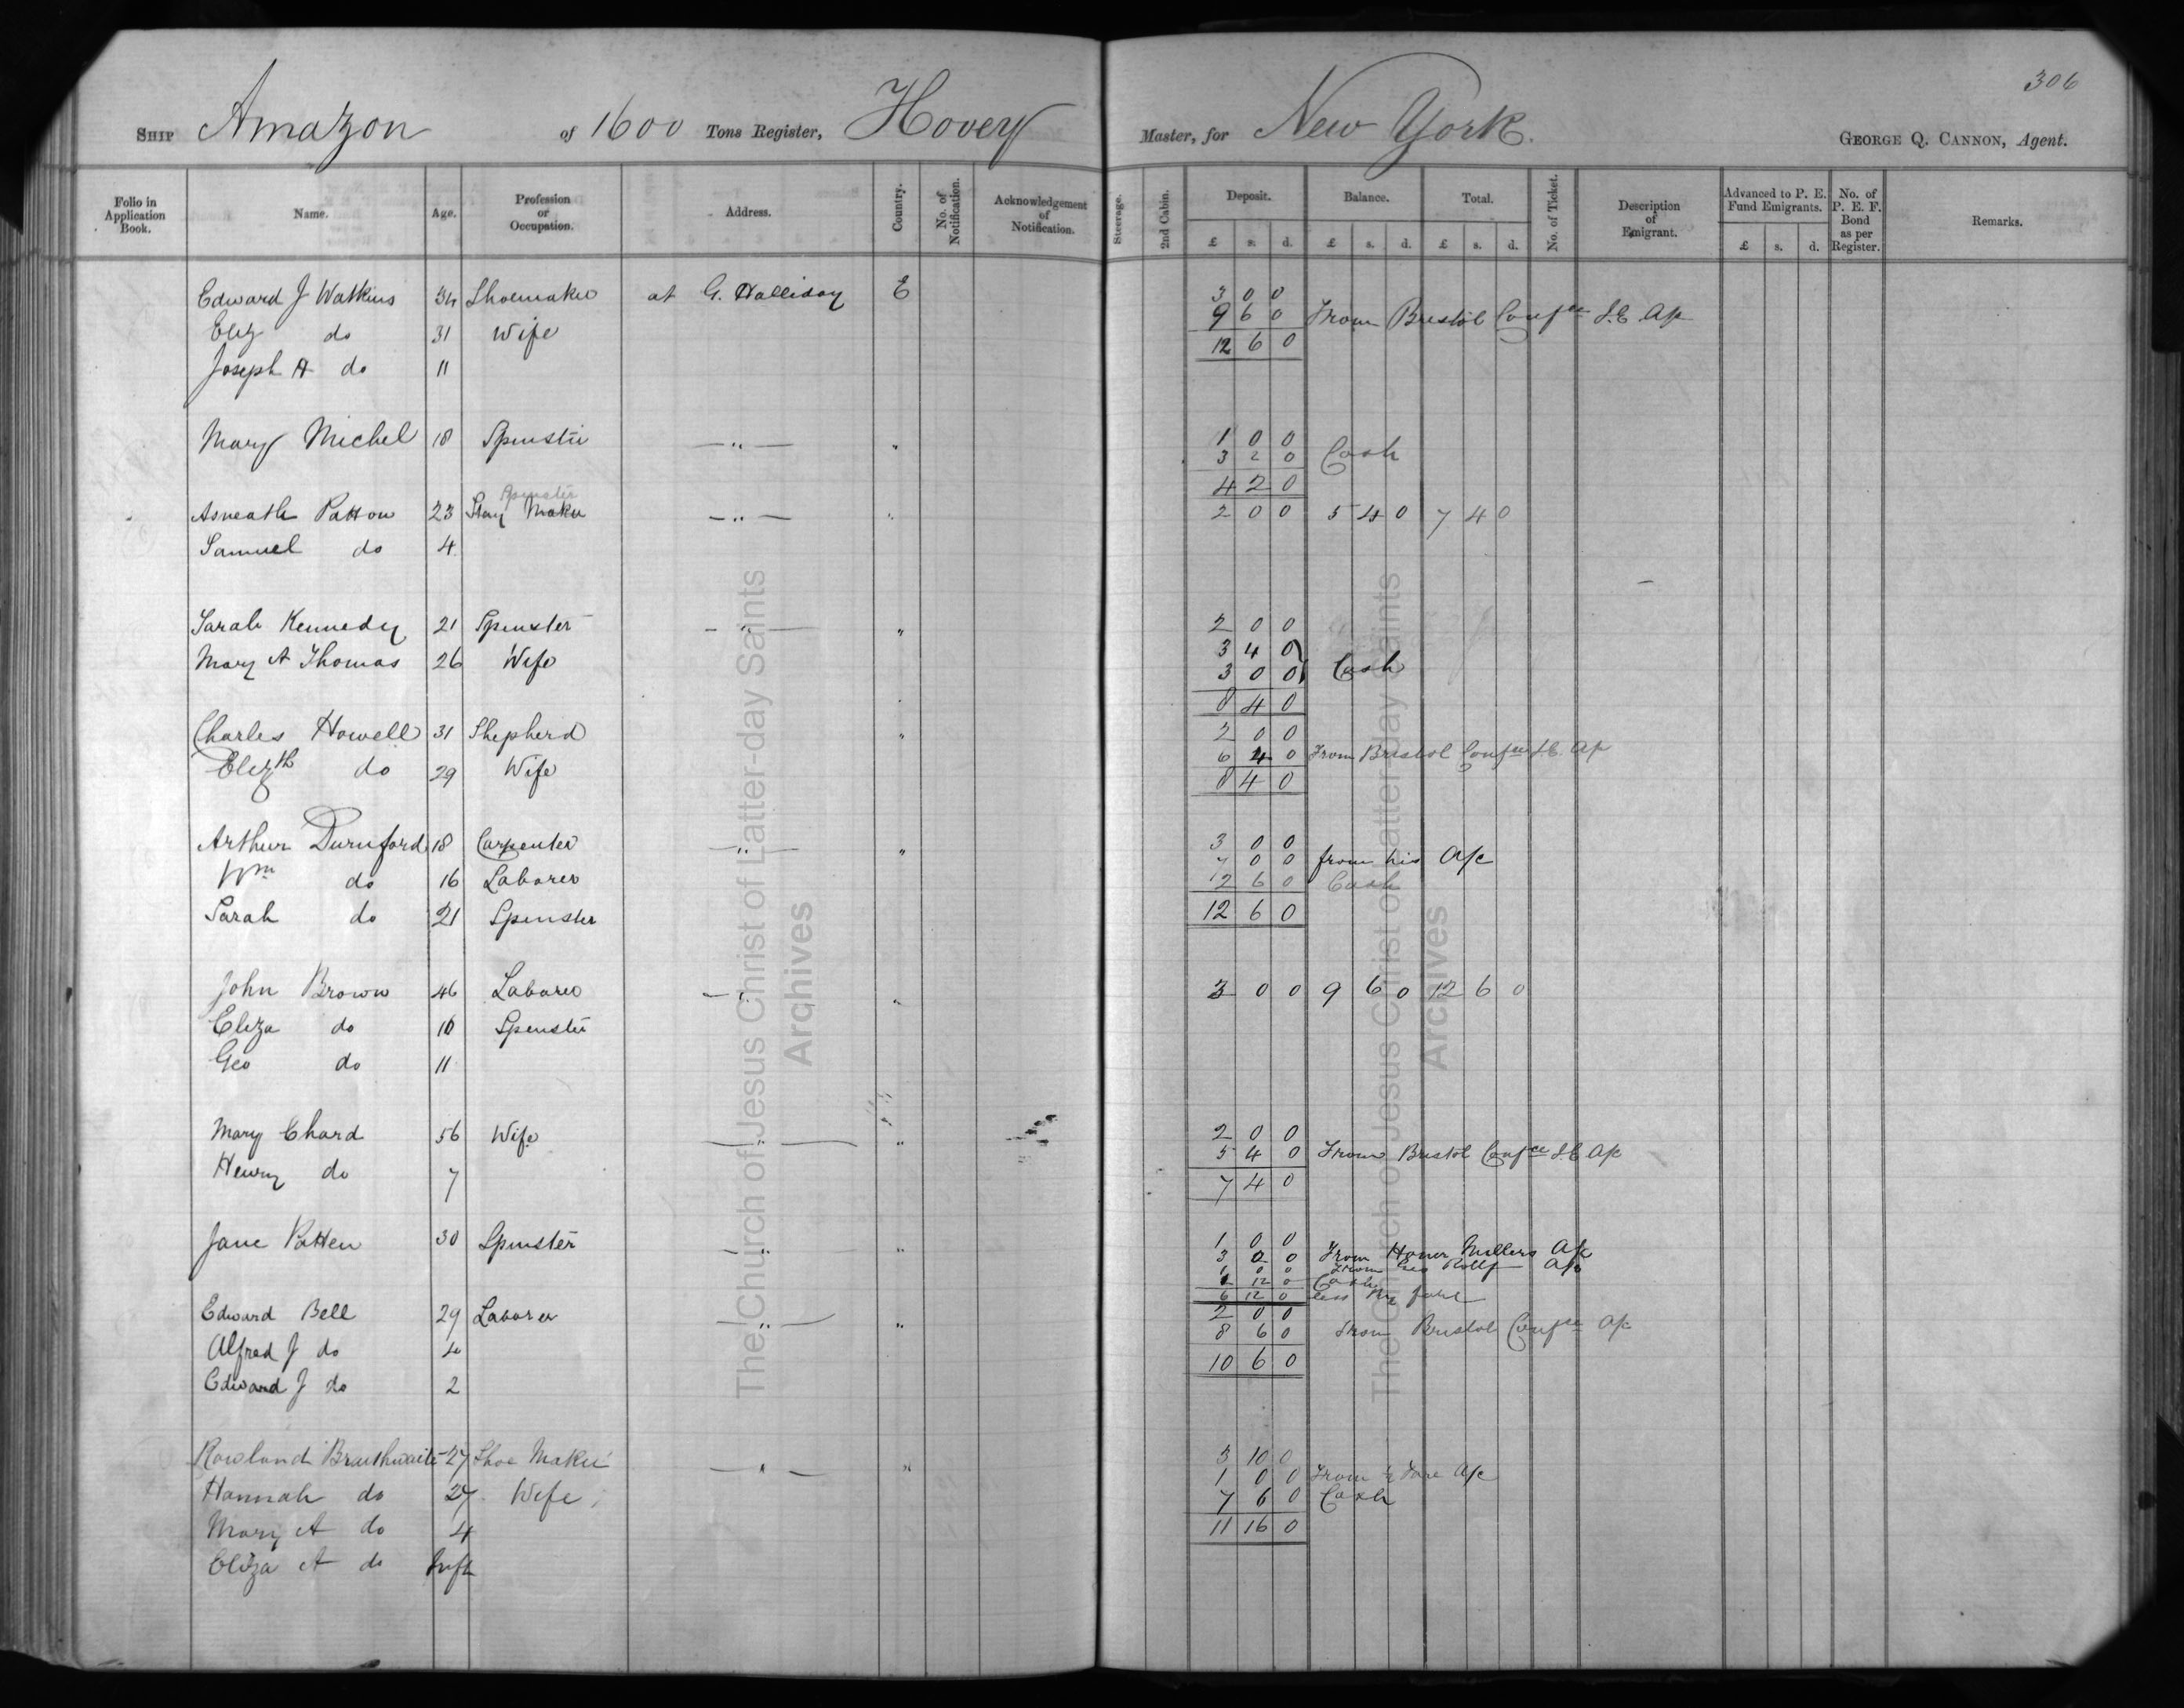 306
SHIP Amazon of 1600 Tons Register, Hovey Master, for New York. GEORGE Q. CANNON, Agent.
Folio in Application Book. Name. Age. Profession or Occupation. Address. Country. No. of Notification. Acknowledgement of Notification. Steerage. 2nd Cabin. Deposit. Balance. Total. No. of Ticket. Description of Emigrant. Advanced to P. E. Fund Emigrants. No. of P. E. F. Bond as per Register. Remarks.
£ s. d. £ s. d. £ s. d. £ s. d.
Edward J Watkins 34 Shoemaker at G. Halliday E 3 0 0
9 6 0 From Bristol Confce I.E. A/c
Eliz do 31 Wife 12 6 0
Joseph A do 11
Mary Michel 18 Spinster — " — " 1 0 0
3 2 0 Cash
4 2 0
Spinster
Asneath Patton 23 Stay Maker — " — " 2 0 0 5 4 0 7 4 0
Samuel do 4
Sarah Kennedy 21 Spinster — " — " 2 0 0
3 4 0
Mary A Thomas 26 Wife 3 0 0 Cash
8 4 0
Charles Howell 31 Shepherd " 2 0 0
6 4 0 From Bristol Confce I.E. A/c
Elizth do 29 Wife 8 4 0
Arthur Durnford 18 Carpenter — " — " 3 0 0
7 0 0 from his A/c
Wm do 16 Laborer 2 6 0 Cash
Sarah do 21 Spinster 12 6 0
John Brown 46 Laborer — " " 3 0 0 9 6 0 12 6 0
Eliza do Spinster
Geo do 11
Mary Chard 56 Wife — " — " 2 0 0
5 4 0 From Bristol Confce I.E. A/c
Henry do 7 7 4 0
Jane Patten 30 Spinster — " — " 1 0 0
3 0 0 From Honor Millers A/c
1 0 0 From Geo Rolly A/c
1 12 0 Cash
6 12 0 less fare
Edward Bell 29 Laborer — " — " 2 0 0
8 6 0 From Bristol Confce A/c
Alfred J do 4 10 6 0
Edward J do 2
Rowland Braithwaite 27 Shoe Maker — " — " 3 10 0
1 0 0 From ½ Fare A/c
Hannah do 27 Wife 7 6 0 Cash
Mary A do 4 11 16 0
Eliza A do Inft
The Church of Jesus Christ of Latter-day Saints
Archives
The Church of Jesus Christ of Latter-day Saints
Archives